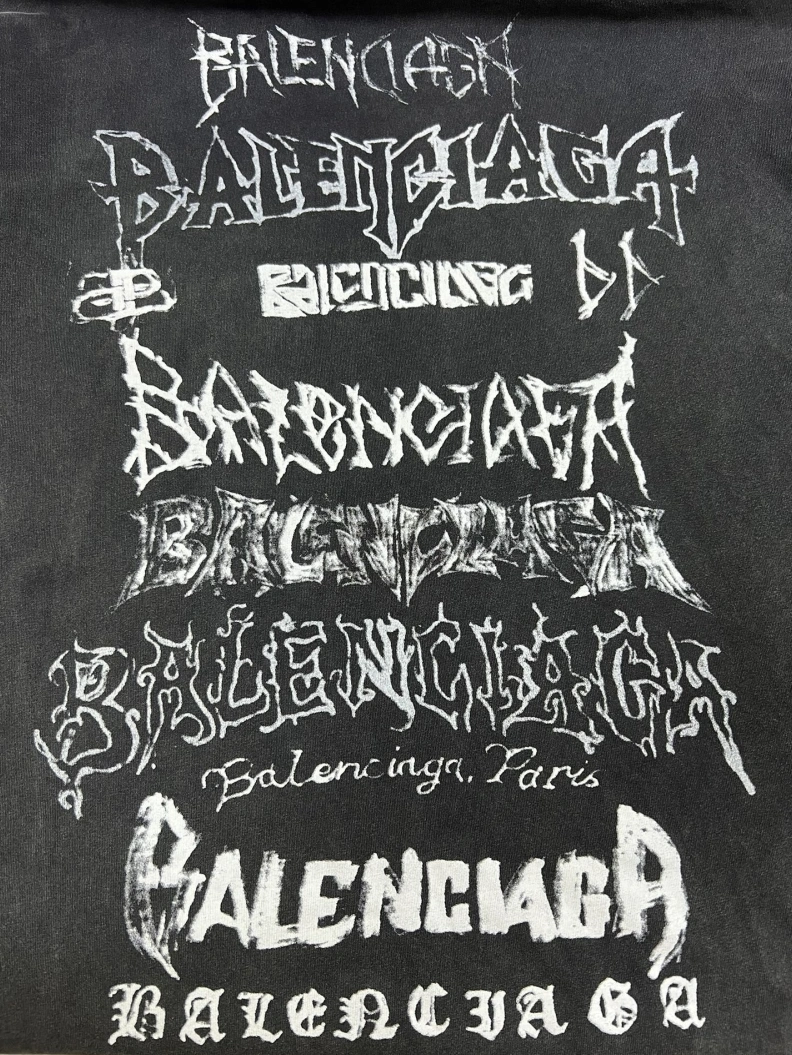 BALENCIAGA
BALENCIAGA
BALENCIAGA
BALENCIAGA
BALENCIAGA
BALENCIAGA
Balenciaga, Paris
BALENCIAGA
BALENCIAGA